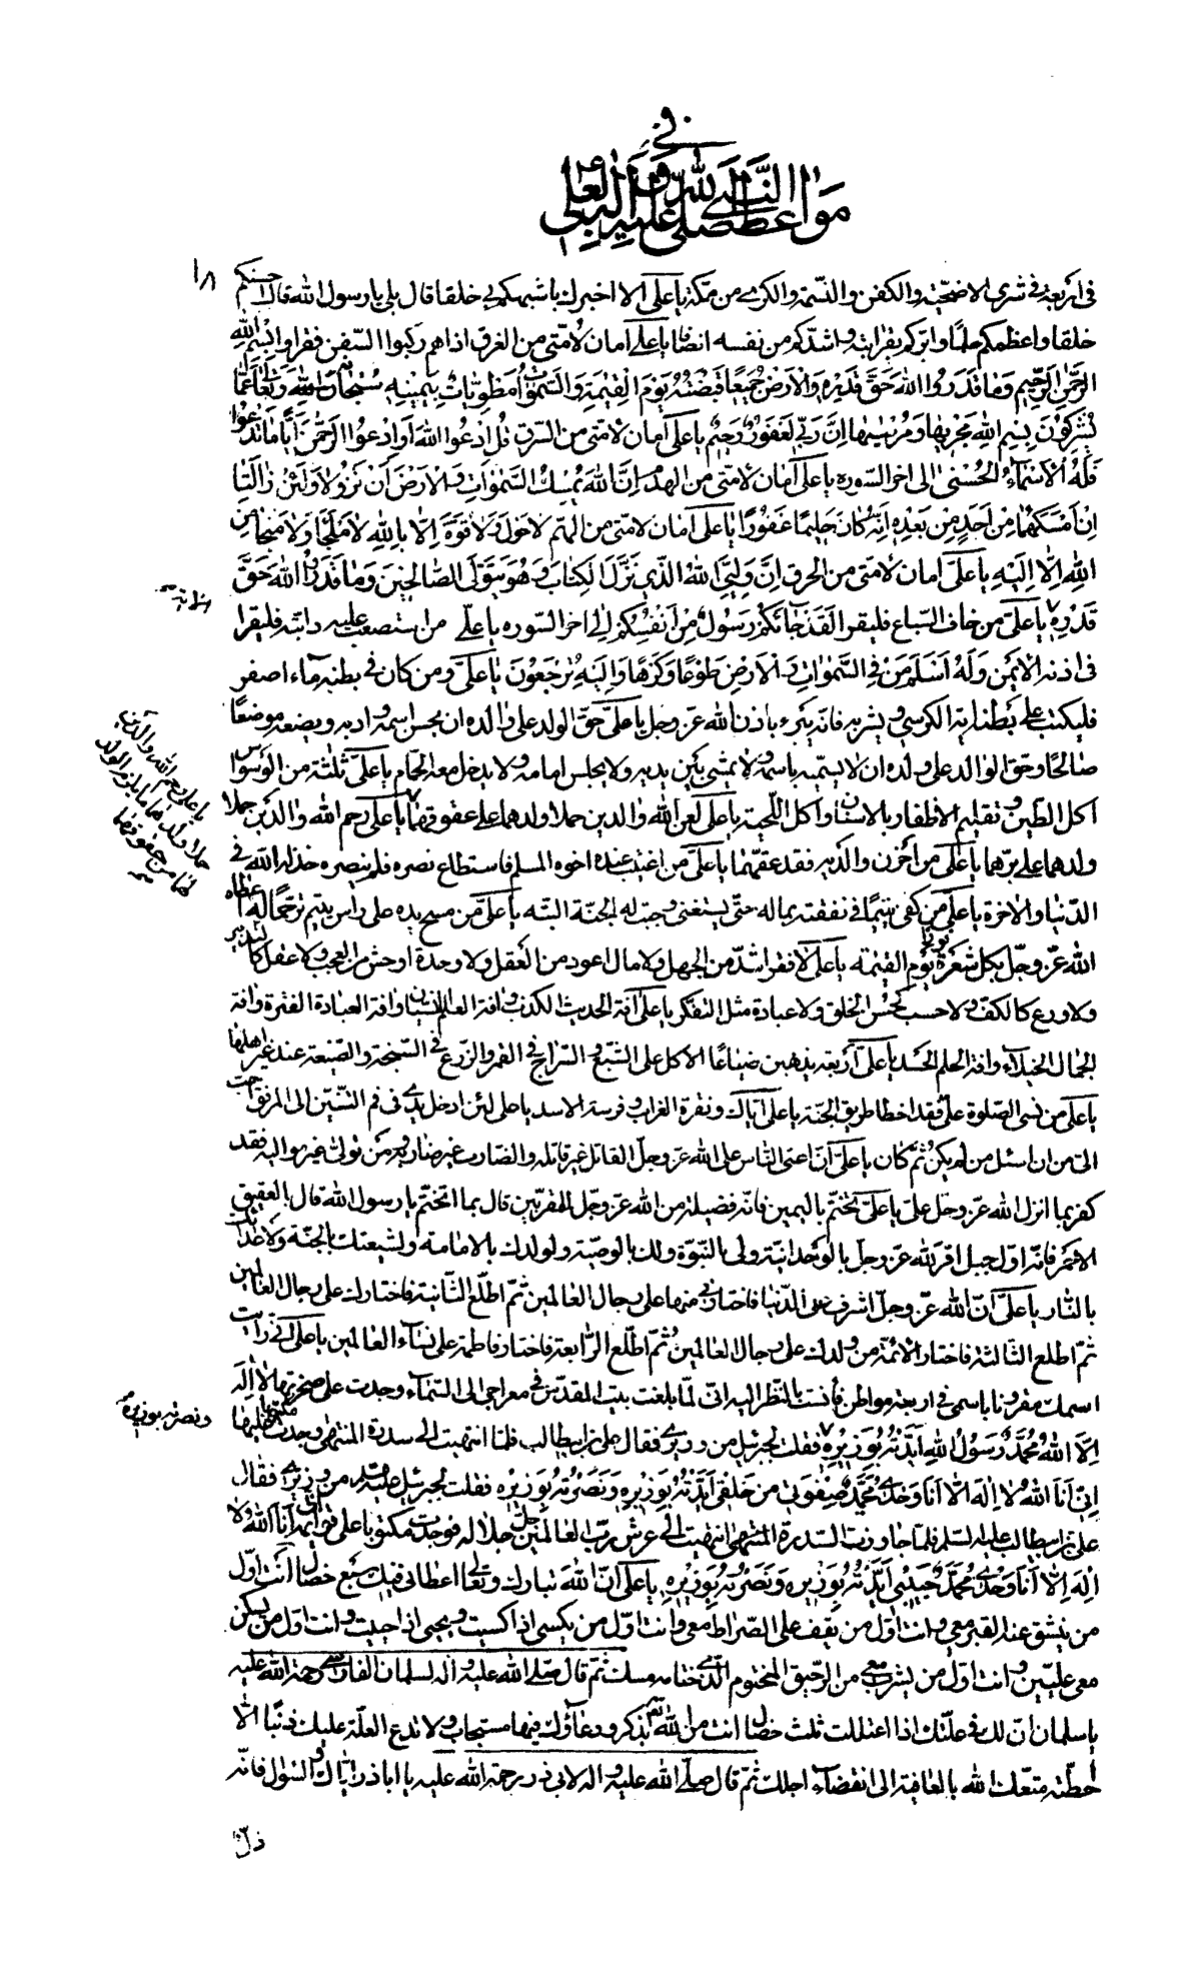 في
مواعظ النبي صلى الله عليه وآله لعلي
١٨
في اربعة في شرى الاضحية والكفن والنسمة والكرى من مكة يا على الا اخبرك باشبهكم بي خلقا قال بلى يا رسول الله قال احسنكم
خلقا واعظمكم حلما وابركم بقرابته واشدكم من نفسه انصافا يا على امان لامتى من الغرق اذا هم ركبوا السفن فقراوا بِسْمِ اللهِ
الرَّحْمنِ الرَّحيمِ وَمَا قَدَرُوا اللهَ حَقَّ قَدْرِهِ وَالاَرْضُ جَميعًا قَبْضَتُهُ يَوْمَ الْقِيمَةِ وَالسَّمَوَاتُ مَطْوِيَّاتٌ بِيَمينِهِ سُبْحَانَهُ وَتَعَالى عَمَّا
يُشْرِكُونَ بِسْمِ اللهِ مَجْريهَا وَمُرْسيهَا اِنَّ رَبّى لَغَفُورٌ رَحيمٌ يا على امان لامتى من السرق قُلِ ادْعُوا اللهَ اَوِ ادْعُوا الرَّحْمنَ اَيًّا مَا تَدْعُوا
فَلَهُ الاَسْمَاءُ الْحُسْنى الى اخر السورة يا على امان لامتى من الهدم اِنَّ اللهَ يُمْسِكُ السَّمَوَاتِ وَالاَرْضَ اَنْ تَزُولا وَلَئِنْ زَالَتَا
اِنْ اَمْسَكَهُمَا مِنْ اَحَدٍ مِنْ بَعْدِهِ اِنَّهُ كَانَ حَليمًا غَفُورًا يا على امان لامتى من الهم لا حَوْلَ وَلا قُوَّةَ اِلا بِاللهِ لا مَلْجَأَ وَلا مَنْجَا مِنَ
اللهِ اِلا اِلَيْهِ يا على امان لامتى من الحرق اِنَّ وَلِيِّىَ اللهُ الَّذي نَزَّلَ الْكِتَابَ وَهُوَ يَتَوَلَّى الصَّالِحينَ وَمَا قَدَرُوا اللهَ حَقَّ
قَدْرِهِ يا على من خاف السباع فليقرا لَقَدْ جَاءَكُمْ رَسُولٌ مِنْ اَنْفُسِكُمْ الى اخر السوره يا على من استصعبت عليه دابته فليقرا
فى اذنه الايمن وَلَهُ اَسْلَمَ مَنْ فِى السَّمَوَاتِ وَالاَرْضِ طَوْعًا وَكَرْهًا وَاِلَيْهِ تُرْجَعُونَ يا على ومن كان فى بطنه ماء اصفر
فليكتب على بطنه اية الكرسى ويشربه فانه يبرء باذن الله عز وجل يا على حق الولد على والده ان يحسن اسمه وادبه ويضعه موضعًا
صالحًا وحق الوالد على ولده ان لا يسميه باسمه ولا يمشى بين يديه ولا يجلس امامه ولا يدخل معه الحمام يا على ثلثة من الوسواس
اكل الطين وتقليم الاظفار بالاسنان واكل اللحية يا على لعن الله والدين حملا ولدهما على عقوقهما يا على رحم الله والدين حملا
ولدهما على برهما يا على من احزن والديه فقد عقهما يا على من اغتيب عنده اخوه المسلم فاستطاع نصره فلم ينصره خذله الله فى
الدنيا والاخرة يا على من كفى يتيمًا فى نفقته بماله حتى يستغنى وجبت له الجنة البتة يا على من مسح يده على راس يتيم ترحمًا له اعطاه
الله عز وجل بكل شعرة نورًا يوم القيمة يا على لا فقر اشد من الجهل ولا مال اعود من العقل ولا وحدة اوحش من العجب ولا عقل كالتدبير
ولا ورع كالكف ولا حسب كحسن الخلق ولا عبادة مثل التفكر يا على افة الحديث الكذب وافة العلم النسيان وافة العبادة الفترة وافة
الجمال الخيلاء وافة الحلم الحسد يا على اربعة يذهبن ضياعًا الاكل على الشبع والسراج فى القمر والزرع فى السبخة والصنيعة عند غير اهلها
يا على من نسى الصلوة على فقد اخطا طريق الجنة يا على اياك ونقرة الغراب وفرسة الاسد يا على لئن ادخل يدى فى فم التنين الى المرفق احب
الى من ان اسئل من لم يكن ثم كان يا على ان اعتى الناس على الله عز وجل القاتل غير قاتله والضارب غير ضاربه ومن تولى غير مواليه فقد
كفر بما انزل الله عز وجل على يا على تختم باليمين فانه فضيلة من الله عز وجل للمقربين قال بما اتختم يا رسول الله قال بالعقيق
الاحمر فانه اول جبل اقر لله عز وجل بالوحدانية ولى بالنبوة ولك بالوصية ولولدك بالامامة ولشيعتك بالجنة ولاعدائك
بالنار يا على ان الله عز وجل اشرف على الدنيا فاختارنى منها على رجال العالمين ثم اطلع الثانية فاختارك على رجال العالمين
ثم اطلع الثالثة فاختار الائمة من ولدك على رجال العالمين ثم اطلع الرابعة فاختار فاطمة على نساء العالمين يا على انى رايت
اسمك مقرونا باسمى فى اربعة مواطن فانست بالنظر اليه انى لما بلغت بيت المقدس فى معراجى الى السماء وجدت على صخرتها لا اِلهَ
اِلا اللهُ مُحَمَّدٌ رَسُولُ اللهِ اَيَّدْتُهُ بِوَزيرِهِ فقلت لجبرئيل من وزيرى فقال على بن ابيطالب فلما انتهيت الى سدرة المنتهى وجدت مكتوبا عليها
اِنّى اَنَا اللهُ لا اِلهَ اِلا اَنَا وَحْدى مُحَمَّدٌ صَفْوَتى مِنْ خَلْقى اَيَّدْتُهُ بِوَزيرِهِ وَنَصَرْتُهُ بِوَزيرِهِ فقلت لجبرئيل من وزيرى فقال
على بن ابيطالب عليه السلم فلما جاوزت السدرة المنتهى انتهيت الى عرش رب العالمين جل جلاله فوجدت مكتوبا على قوائمه اَنَا اللهُ لا
اِلهَ اِلا اَنَا وَحْدى مُحَمَّدٌ حَبيبى اَيَّدْتُهُ بِوَزيرِهِ وَنَصَرْتُهُ بِوَزيرِهِ يا على ان الله تبارك وتعالى اعطانى فيك سبع خصال انت اول
من ينشق عنه القبر معى وانت اول من يقف على الصراط معى وانت اول من يكسى اذا كسيت ويحيى اذا حييت وانت اول من يسكن
معى عليين وانت اول من يشرب معى من الرحيق المختوم الذى ختامه مسك ثم قال صلى الله عليه واله لسلمان الفارسى رحمة الله عليه
يا سلمان ان لك فى علتك اذا اعتللت ثلث خصال انت من الله تعالى بذكر ودعاؤك فيها مستجاب ولا تدع العلة عليك ذنبًا الا
حطته متعك الله بالعافية الى انقضاء اجلك ثم قال صلى الله عليه واله لابى ذر رحمة الله عليه يا اباذر اياك والسؤال فانه
ذل
يا على رحم الله والدين
حملا ولدهما
ونصرته بوزيره